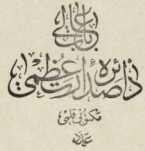 باب عالی
دائرهٔ صدارت عظمی
مکتوبی قلمی